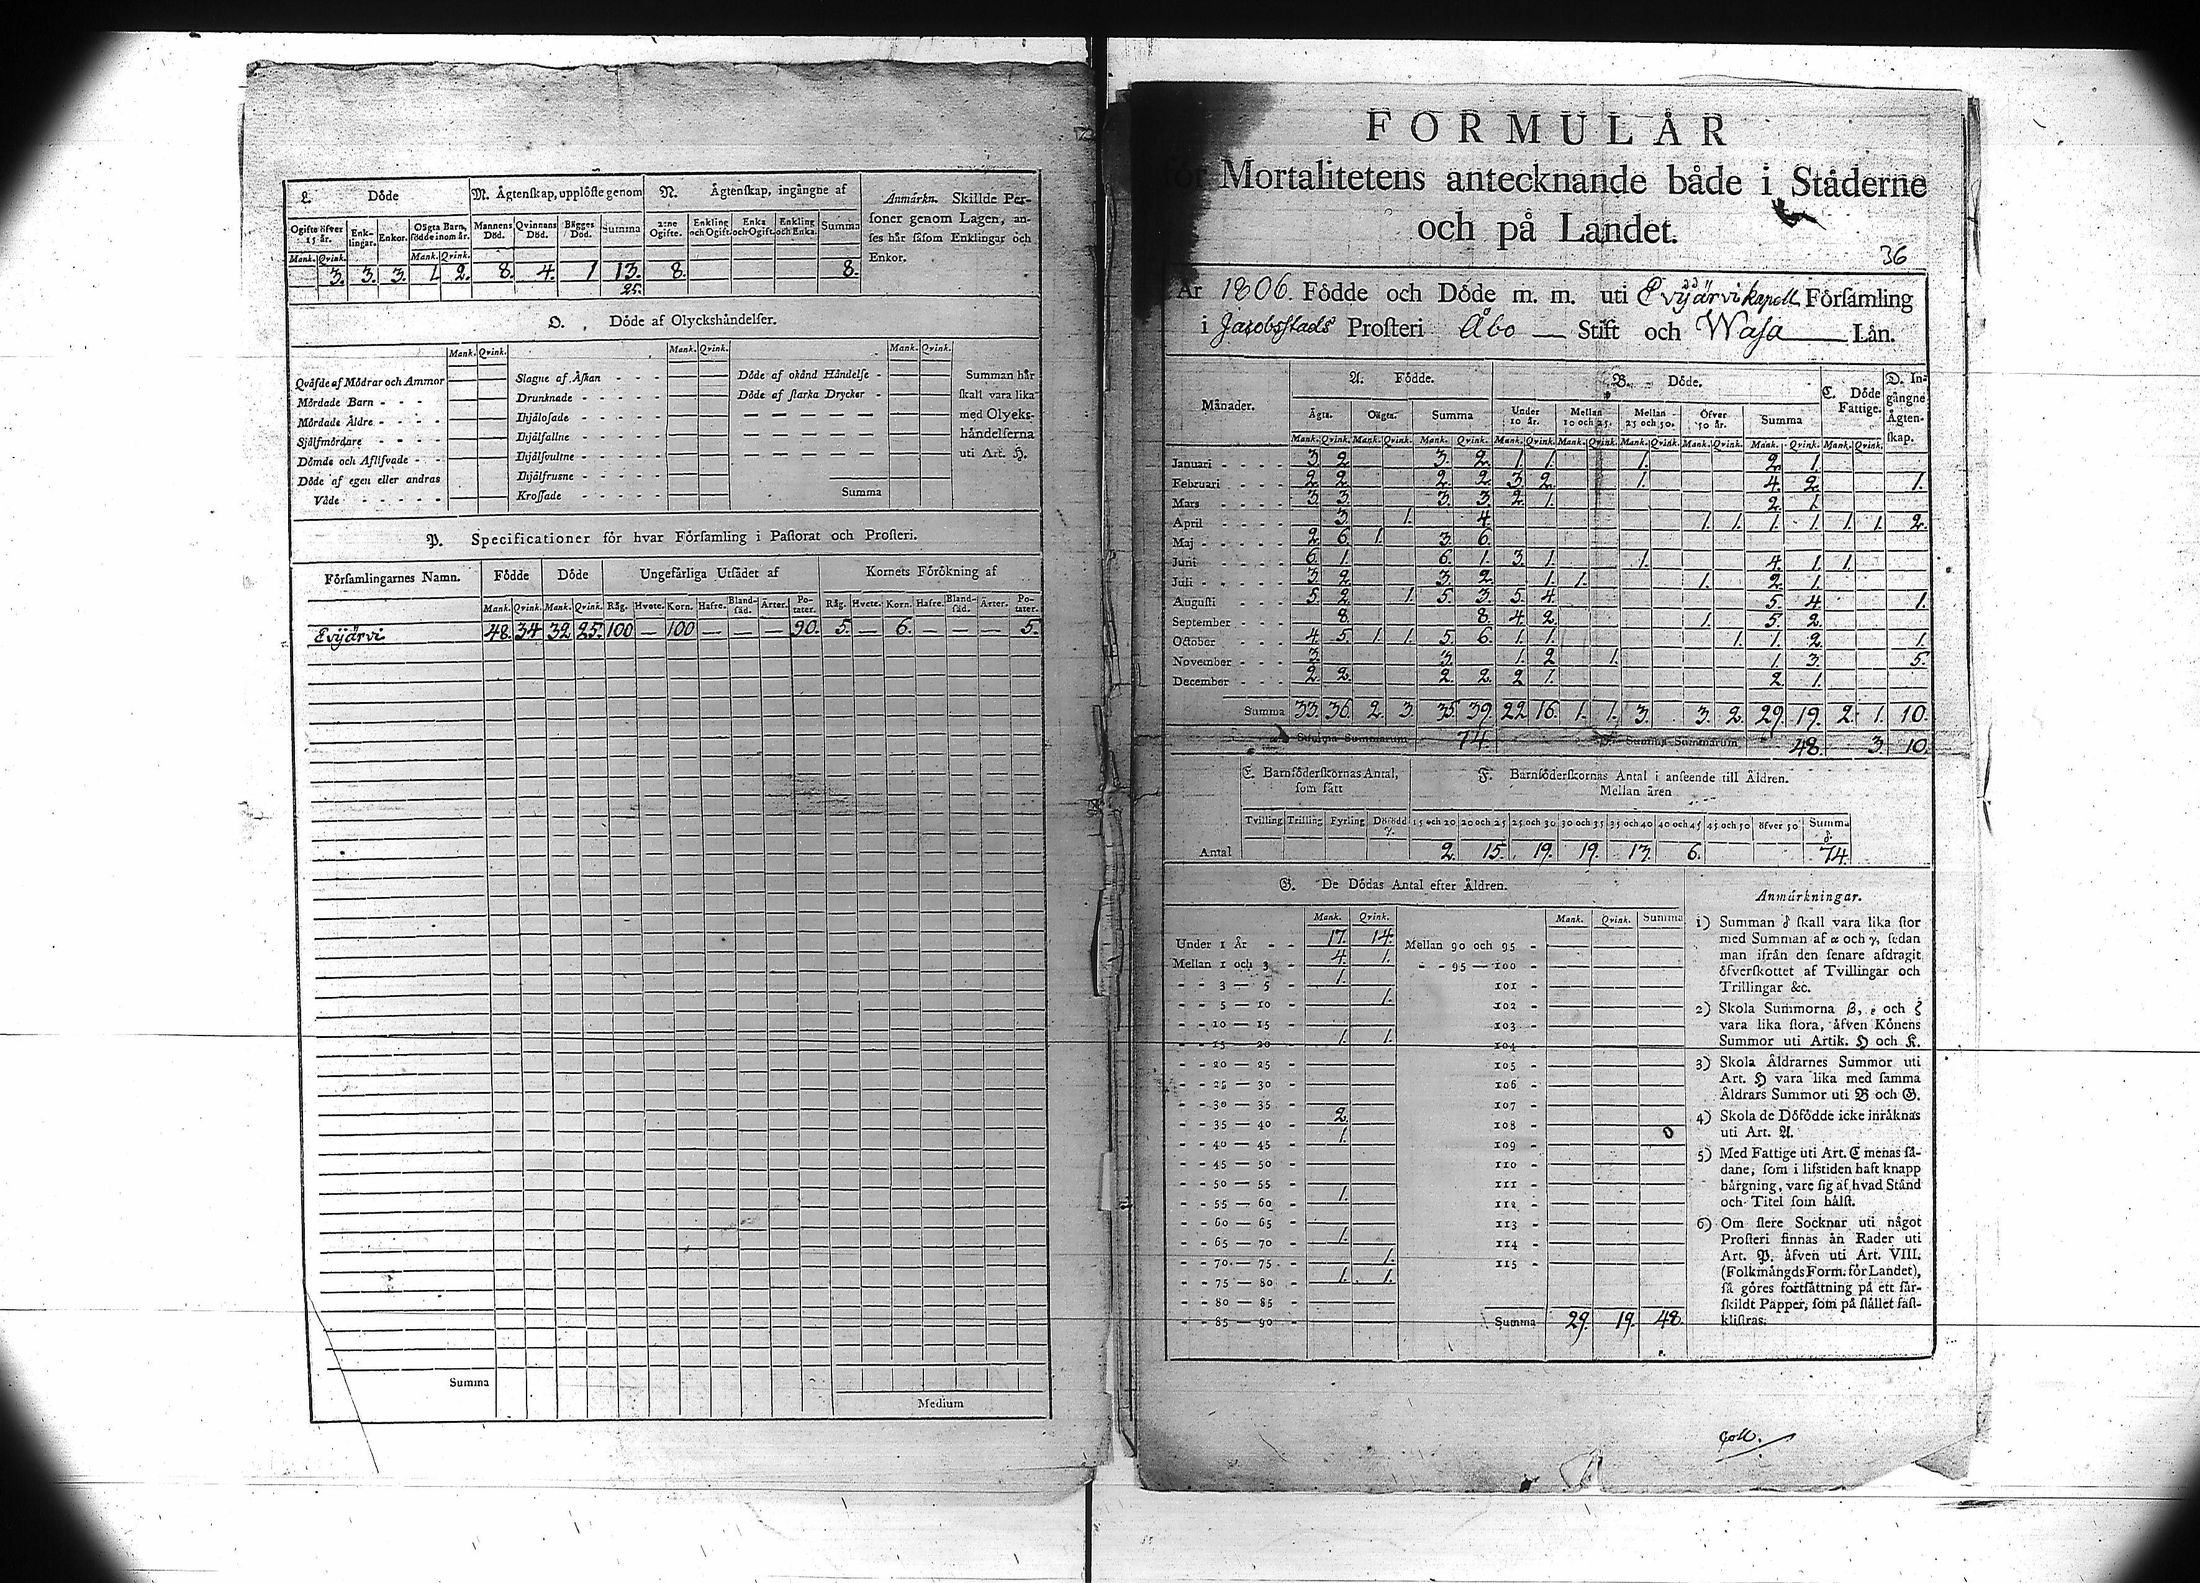 L. Döde
M. Ägtenskap, upplöste genom
N. Ägtenskap, ingångne af
Anmärkn. Skillde Per-
soner genom Lagen, an-
ses här såsom Enklingar och
Enkor.
Ogifte öfver 15 år. Enk-lingar. Enkor. Oägta Barn, födde inom år. Mannens Död. Qvinnans Död. Bägges Död. Summa 2:ne Ogifte. Enkling och Ogift. Enka och Ogift. Enkling och Enka. Summa
Mank. Qvink. Mank. Qvink.
3. 3. 3. 1. 2. 8. 4. 1 13. 8. 8.
25.
O. Döde af Olyckshändelser.
Mank. Qvink. Mank. Qvink. Mank. Qvink.
Qväfde af Mödrar och Ammor Slagne af Åskan - - - Döde af okänd Händelse - Summan här
Mördade Barn - - - Drunknade - - - - - Döde af starka Drycker - skall vara lika
Mördade Äldre - - - - Ihjälfrosade - - - - med Olycks-
Sjelfmördare - - - - Ihjälfallne - - - - händelserna
Dömde och Aflifvade - - Ihjälsvultne - - - - uti Art. H.
Döde af egen eller andras Ihjälfrusne - - - -
Våde - - - - - Krossade - - - - - Summa
P. Specificationer för hvar Församling i Pastorat och Prosteri.
Församlingarnes Namn. Födde Döde Ungefärliga Utsädet af Kornets Förökning af
Mank. Qvink. Mank. Qvink. Råg. Hvete. Korn. Hafre. Bland-säd. Ärter. Po-tater. Råg. Hvete. Korn. Hafre. Bland-säd. Ärter. Po-tater.
Evijärvi 48. 34 32 25. 100 — 100 — — — 90. 5. — 6. — — — 5.
Summa
Medium
FORMULÄR
för Mortalitetens antecknande både i Städerne
och på Landet.
36
År 1806. Födde och Döde m. m. uti Evijärvi kapell Församling
i Jacobsstads Prosteri Åbo — Stift och Wasa — Län.
Månader. A. Födde. B. Döde. C. Döde Fattige. D. In-gångne Ägten-skap.
Ägta. Oägta. Summa Under 10 år. Mellan 10 och 25. Mellan 25 och 50. Öfver 50 år. Summa
Mank. Qvink. Mank. Qvink. Mank. Qvink. Mank. Qvink. Mank. Qvink. Mank. Qvink. Mank. Qvink. Mank. Qvink. Mank. Qvink.
Januari - - - - 3 2 3. 2. 1. 1. 1. 2. 1.
Februari - - - 2 2 2 2 3. 2. 1. 4. 2. 1.
Mars - - - - 3 3 3. 3 2 1. 2. 1.
April - - - - 3. 1. 4. 1. 1. 1. 1. 1. 1. 2.
Maj - - - - - 2 6. 1. 3. 6.
Juni - - - - 6 1. 6. 1. 3. 1. 1. 4. 1. 1.
Juli - - - - 3 2 3. 2. 1. 1. 1. 2. 1.
Augusti - - - 5 2 1. 5. 3 5 4 5. 4. 1.
September - - - 8. 8. 4 2. 1. 5. 2.
October - - - 4 5. 1. 1. 5. 6. 1. 1. 1. 1. 2. 1.
November - - - 3. 3. 1. 2 1. 1. 3. 5.
December - - - 2 2. 2. 2. 2 1. 2. 1.
Summa 33. 36. 2. 3. 35. 39. 22 16. 1. 1. 3. 3. 2. 29. 19. 2. 1. 10.
Summa Summarum 74. Summa Summarum 48. 3 10.
E. Barnföderskornas Antal, som fått
F. Barnföderskornas Antal i anseende till Åldren.
Mellan åren
Tvilling Trilling Fyrling Dödfödd γ. 15 och 20 20 och 25 25 och 30 30 och 35 35 och 40 40 och 45 45 och 50 öfver 50 Summa δ.
Antal 2. 15. 19. 19. 13. 6. 74.
G. De Dödas Antal efter Åldren.
Mank. Qvink. Mank. Qvink. Summa
Under 1 År - - 17. 14. Mellan 90 och 95 -
Mellan 1 och 3 - 4. 1. - - 95 — 100 -
- - 3 — 5 - 1. 101 -
- - 5 — 10 - 1. 102 -
- - 10 — 15 - 103 -
- - 15 — 20 - 1. 1. 104 -
- - 20 — 25 - 105 -
- - 25 — 30 - 106 -
- - 30 — 35 - 107 -
- - 35 — 40 - 2. 108 -
- - 40 — 45 - 1. 109 -
- - 45 — 50 - 110 -
- - 50 — 55 - 111 -
- - 55 — 60 - 1. 112 -
- - 60 — 65 - 113 -
- - 65 — 70 - 1. 114 -
- - 70 — 75 - 1. 115 -
- - 75 — 80 - 1. 1.
- - 80 — 85 -
- - 85 — 90 - Summa 29. 19. 48.
Anmärkningar.
1) Summan δ skall vara lika stor
med Summan af α och γ, sedan
man ifrån den senare afdragit
öfverskottet af Tvillingar och
Trillingar &c.
2) Skola Summorna β, ε och ζ
vara lika stora, äfven Könens
Summor uti Artik. H och K.
3) Skola Åldrarnes Summor uti
Art. H vara lika med samma
Åldrars Summor uti B och G.
4) Skola de Döfödde icke inräknas
uti Art. A.
5) Med Fattige uti Art. C menas så-
dane, som i lifstiden haft knapp
bärgning, vare sig af hvad Stånd
och Titel som hälst.
6) Om flere Socknar uti något
Prosteri finnas än Rader uti
Art. P. äfven uti Art. VIII.
(Folkmängds Form. för Landet),
så göres fortsättning på ett sär-
skildt Papper, som på stället fast-
klistras.
Coll.